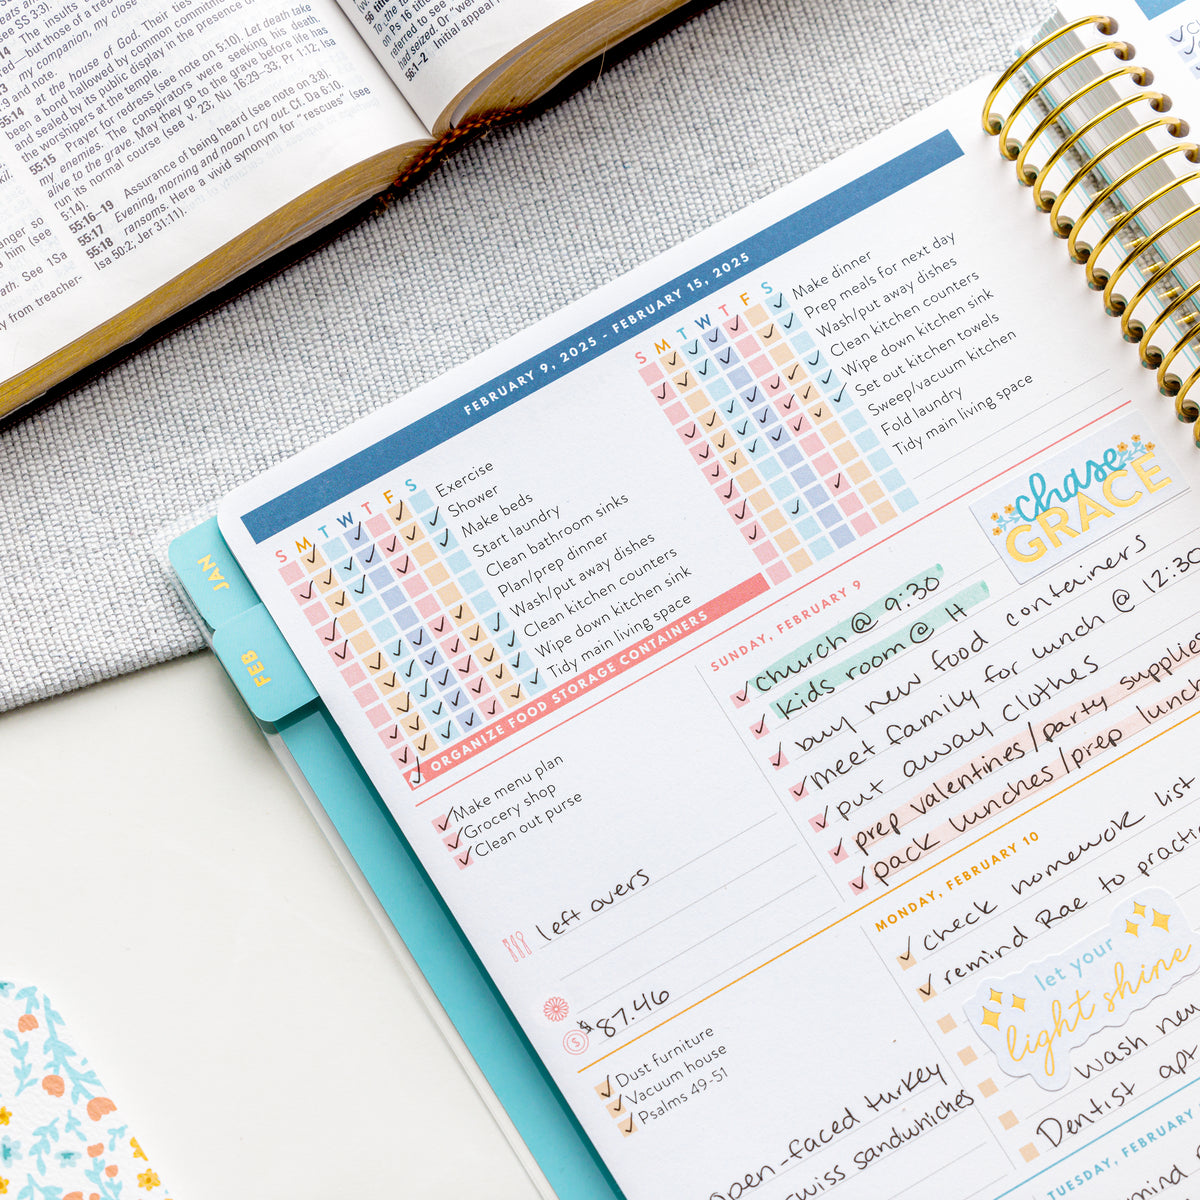 SS 3:3).
14 The ins
red—but those of a trea
my companion, my close
:9 and note.
55:14 at the house of God. Their ties
been a bond hallowed by common commitment
and sealed by its public display in the presence o
the worshipers at the temple.
55:15 Prayer for redress (see note on 5:10). Let death take
my enemies. The conspirators were seeking his death,
alive to the grave. May they go to the grave before life has
run its normal course (see v. 23; Nu 16:29–33; Pr 1:12, Isa
5:14).
55:16–19 Assurance of being heard (see note on 3:8).
55:17 Evening, morning and noon I cry out. Cf. Da 6:10.
55:18 ransoms. Here a vivid synonym for "rescues" (see
Isa 50:2; Jer 31:11).
anger so
him (see
ath. See 1Sa
y from treacher-
56 title
on Ps 16 title
referred to see
had seized. Or "wer
56:1–2 Initial appeal
JAN
FEB
FEBRUARY 9, 2025 - FEBRUARY 15, 2025
S M T W T F S
Exercise
Shower
Make beds
Start laundry
Clean bathroom sinks
Plan/prep dinner
Wash/put away dishes
Clean kitchen counters
Wipe down kitchen sink
Tidy main living space
S M T W T F S
Make dinner
Prep meals for next day
Wash/put away dishes
Clean kitchen counters
Wipe down kitchen sink
Set out kitchen towels
Sweep/vacuum kitchen
Fold laundry
Tidy main living space
ORGANIZE FOOD STORAGE CONTAINERS
Make menu plan
Grocery shop
Clean out purse
left overs
$87.46
chase
GRACE
SUNDAY, FEBRUARY 9
church @ 9:30
kids room @ 11
buy new food containers
meet family for lunch @ 12:30
put away clothes
prep valentines/party supplies
pack lunches/prep lunch
Dust furniture
Vacuum house
Psalms 49-51
open-faced turkey
swiss sandwhiches
MONDAY, FEBRUARY 10
check homewok list
remind Rae to practi
let your
light shine
wash new
Dentist apt
TUESDAY, FEBRUARY